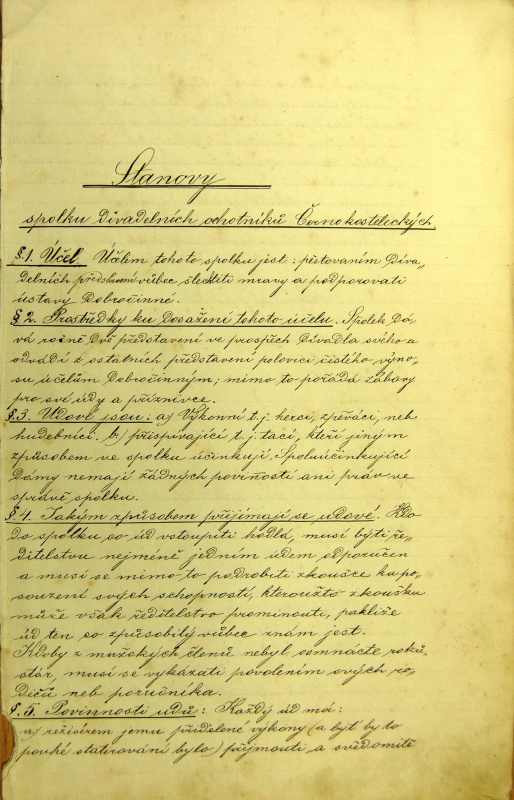 Stanovy
spolku Divadelních ochotníků Černokosteleckých.
§.1. Účel. Účelem tohoto spolku jest: pěstovaním Diva„
delních představení vůbec šlechtiti mravy a podporovati
ústavy Dobročinné.
§ 2. Prostředky ku Dosažení tohoto účelu. Spolek Dá„
vá ročně Dvě představení ve prospěch Divadla svého a
odvádí z ostatních představení polovici čistého výno„
su účelům Dobročinným; mimo to pořádá zábavy
pro své údy a příznivce.
§.3. Údové jsou: a) Výkonní t.j. herci, zpěváci, neb
hudebníci. b) přispívající t.j. tací, kteří jiným
způsobem ve spolku účinkují. Spoluúčinkující
Dámy nemají žádných povinností ani práv ve
správě spolku.
§ 4. Jakým způsobem přijímají se udové. Kdo
do spolku co úd vstoupiti hodlá, musí býti ře„
ditelstvu nejméně jedním údem odporučen
a musí se mimo to podrobiti zkoušce ku po„
souzení svých schopností, kteroužto zkoušku
může však ředitelstvo prominouti, pakliže
úd ten co způsobilý vůbec znám jest.
Kdoby z mužských členů nebyl osmnácte roků
stár, musí se vykázati povolením svých ro„
dičů neb poručníka.
§.5. Povinnosti udů: Každý úd má:
a) režisérem jemu přidělené výkony (a byť by to
pouhé statování bylo) přijmouti a svědomitě